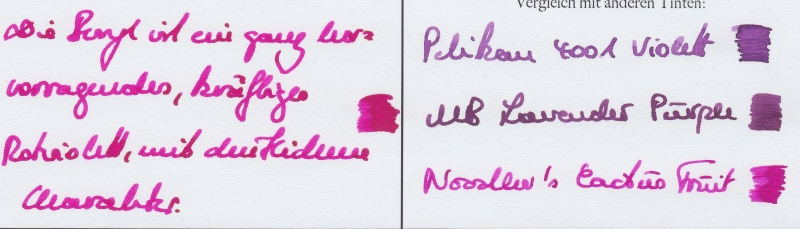 Die Beryl ist ein ganz her=
vorragendes, kräftiges
Rotviolett, mit
Charakter.
Vergleich mit anderen Tinten:
Pelikan 4001 Violett
MB Lavender Purple
Noodler's Cactus Fruit